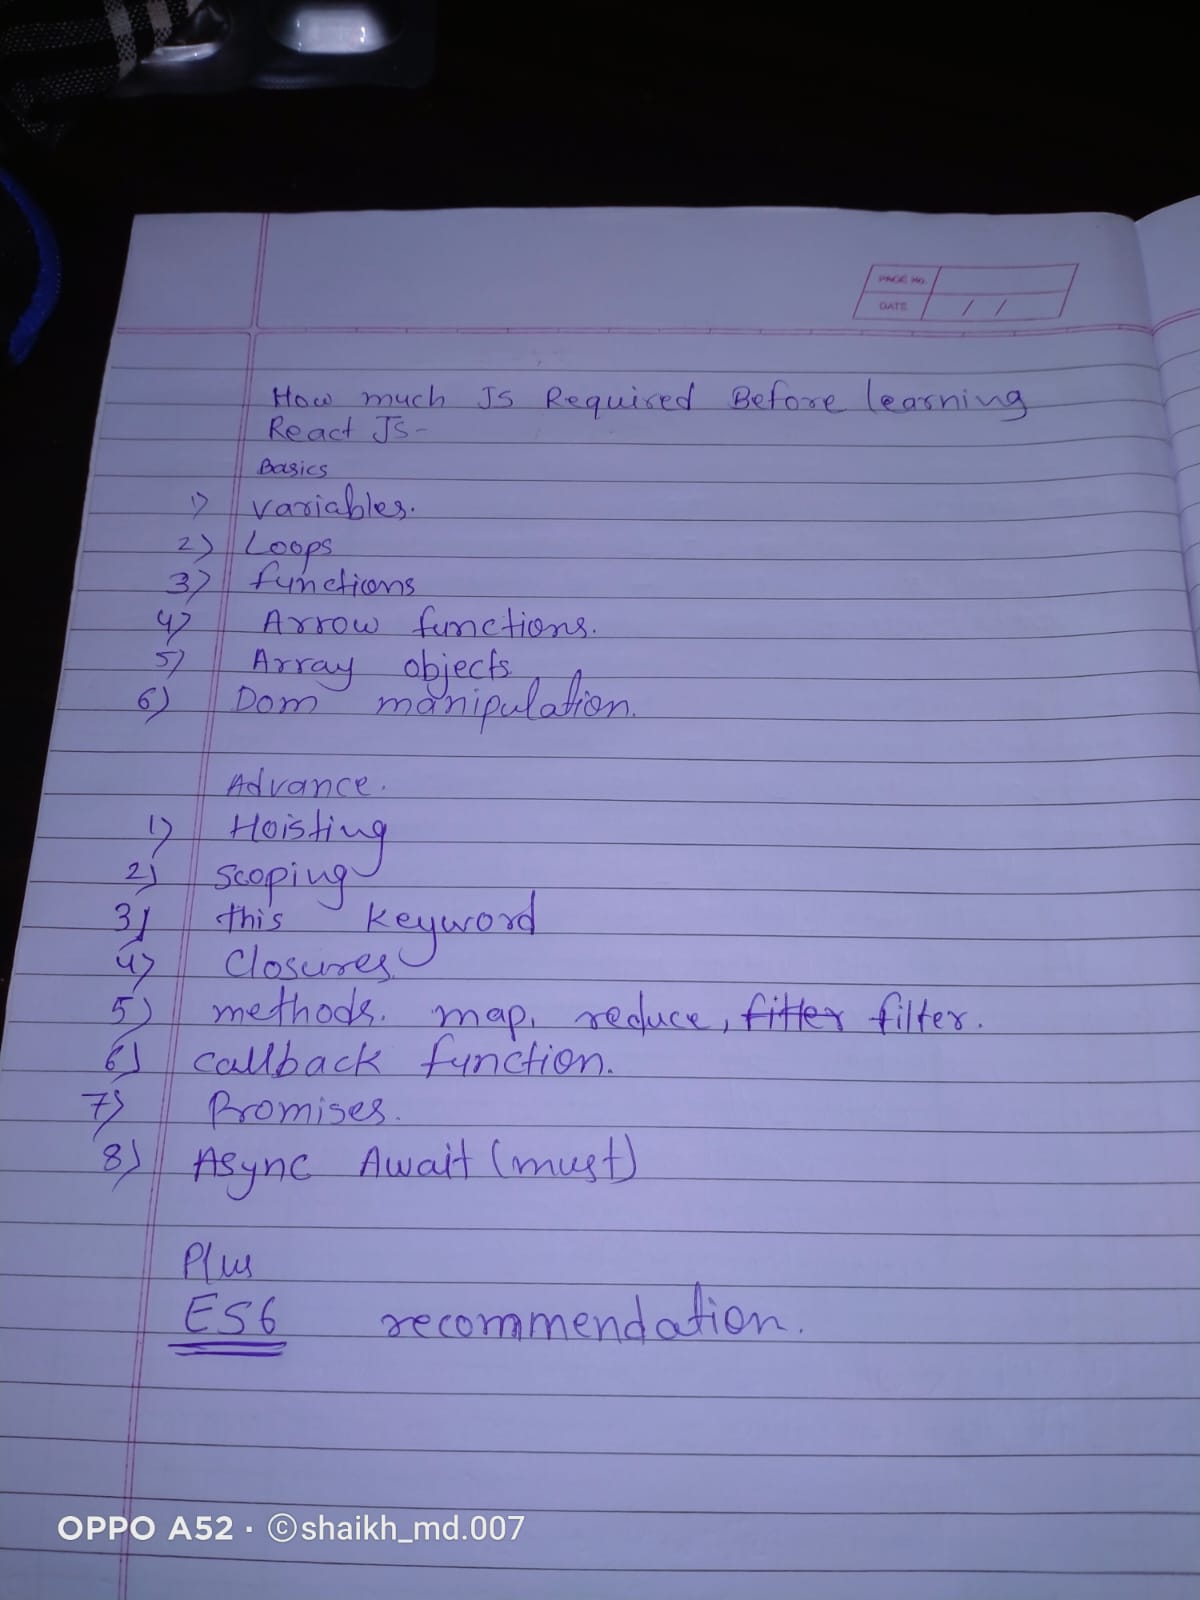 PAGE NO.
DATE / /
How much JS Required Before learning
React JS-
Basics
1) variables.
2) Loops
3) functions
4) Arrow functions.
5) Array objects
6) Dom manipulation.
Advance.
1) Hoisting
2) scoping
3) this keyword
4) Closures
5) methods. map, reduce, fitter filter.
6) callback function.
7) Promises.
8) Async Await (must)
Plus
ES6 recommendation.
OPPO A52 · ©shaikh_md.007